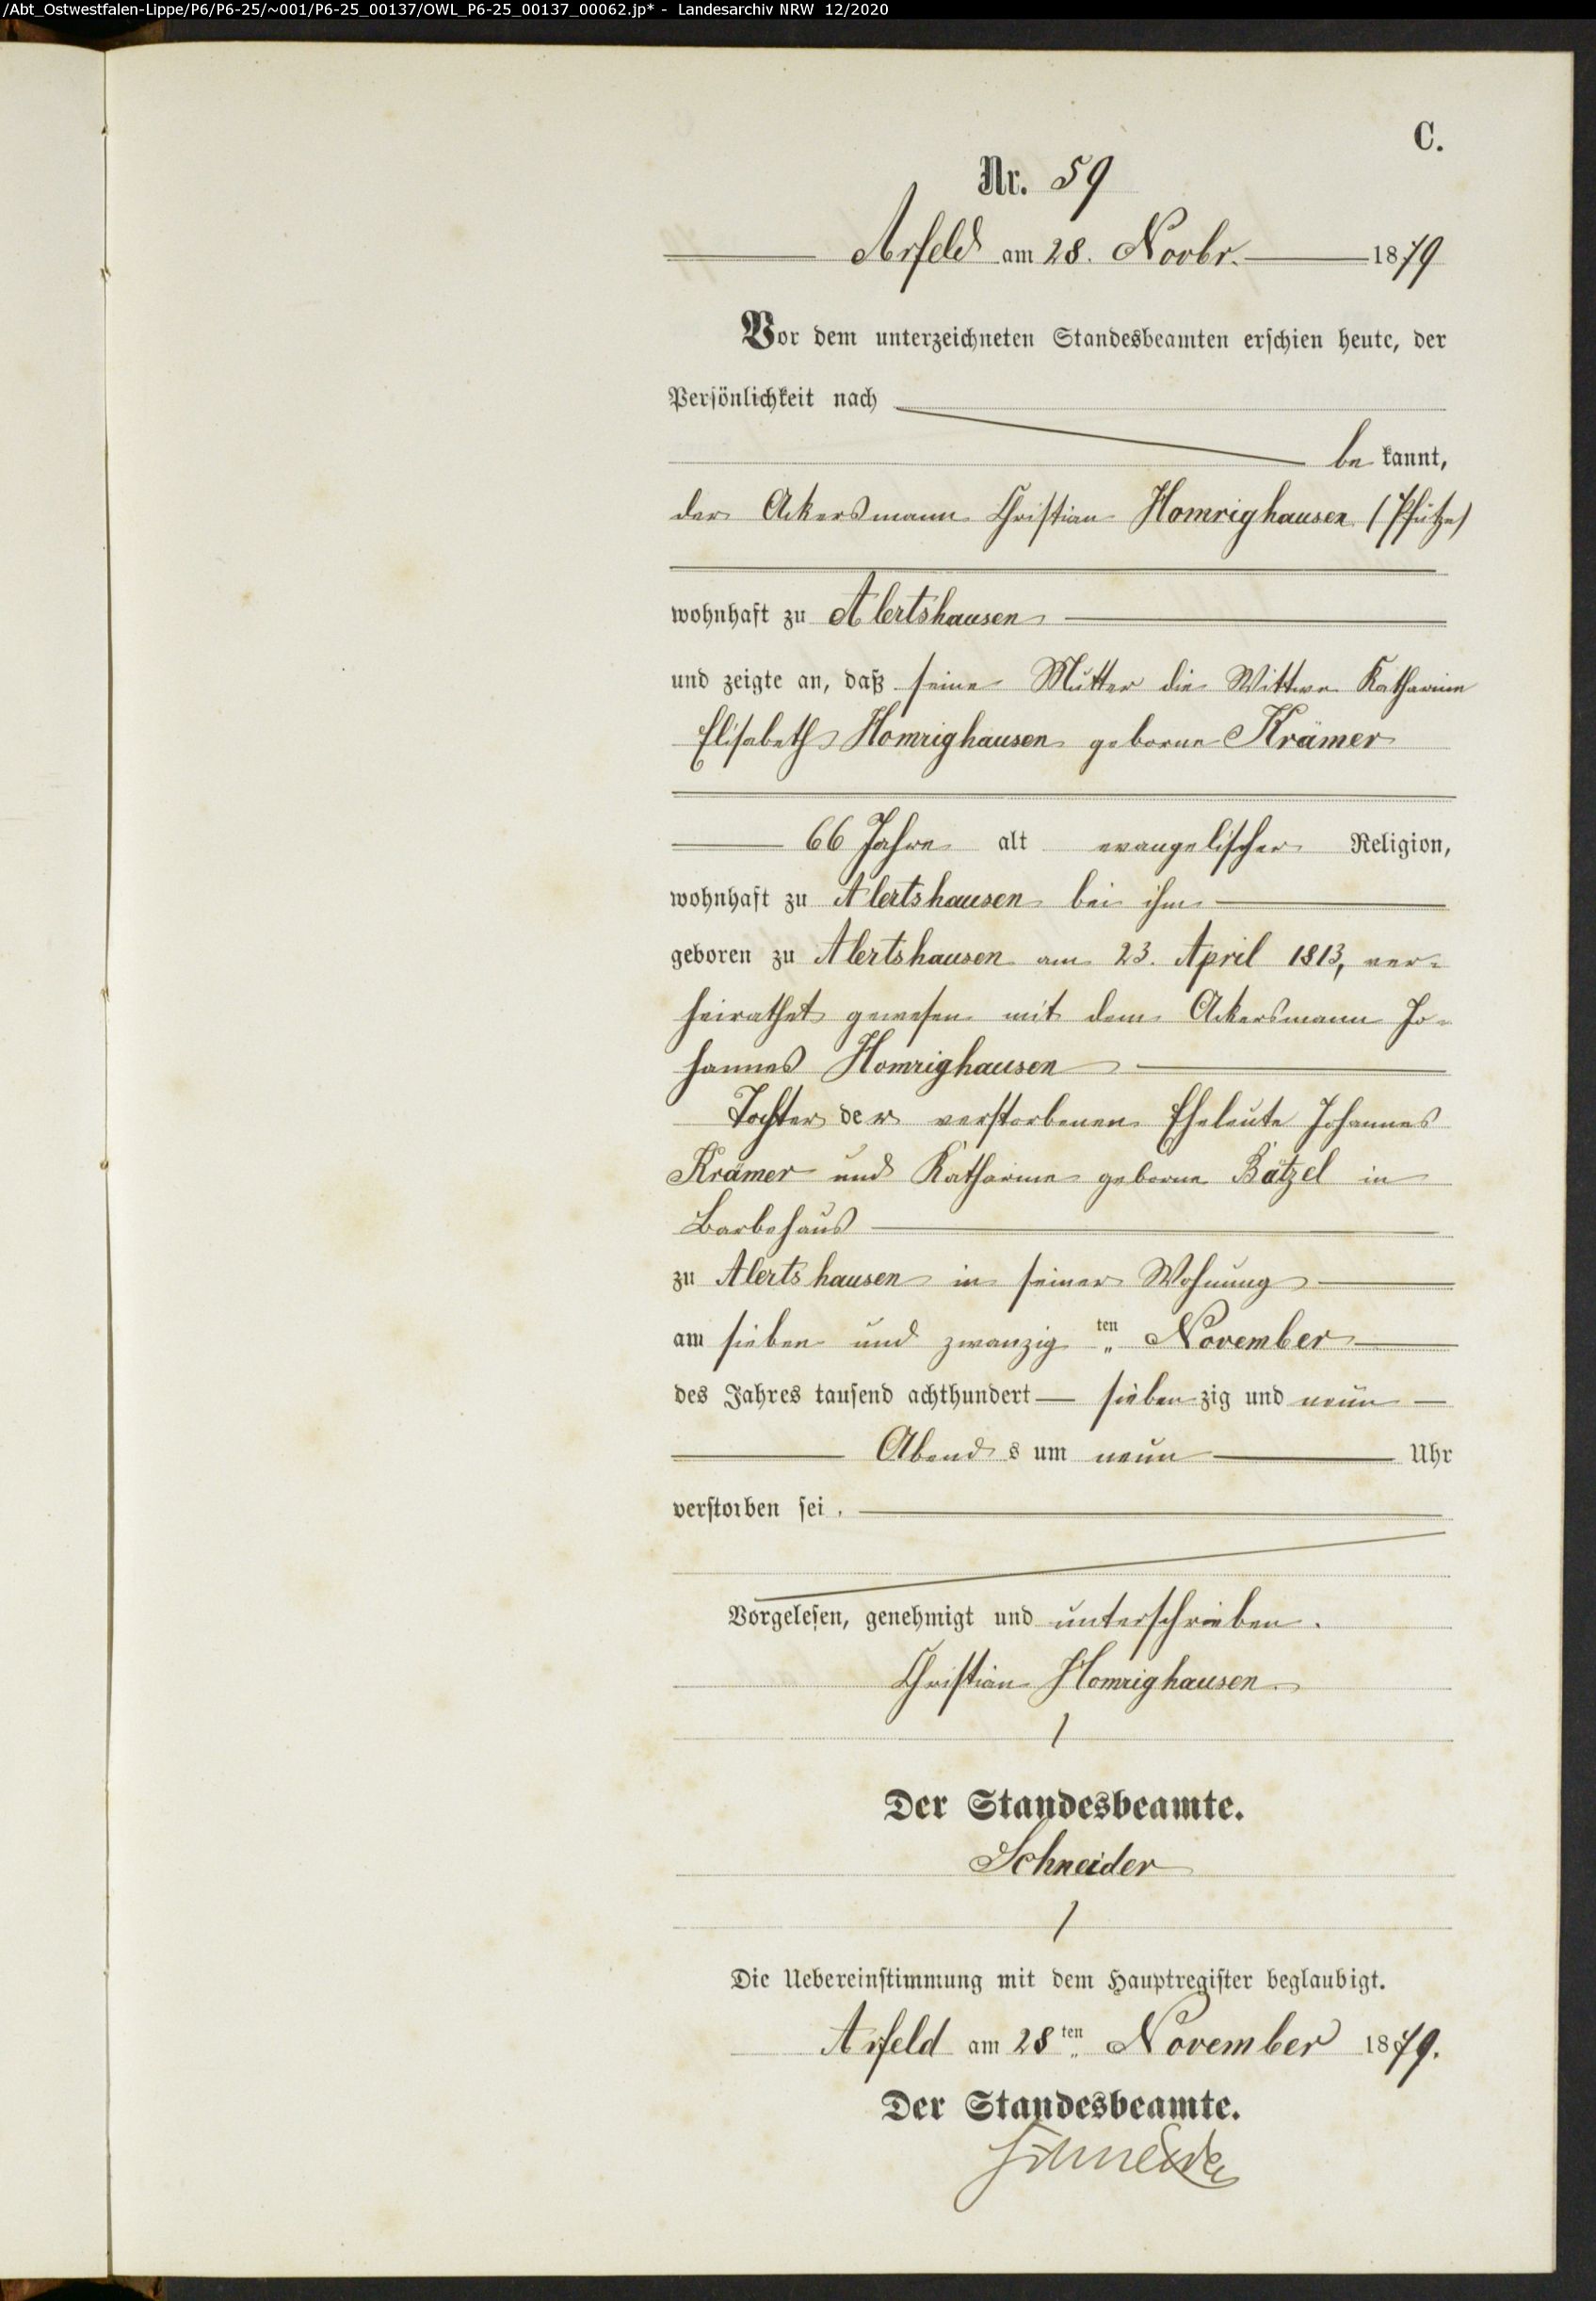 /Abt_Ostwestfalen-Lippe/P6/P6-25/~001/P6-25_00137/OWL_P6-25_00137_00062.jp* - Landesarchiv NRW 12/2020
C.
Nr. 59
Arfeld am 28. Novbr. 1879
Vor dem unterzeichneten Standesbeamten erschien heute, der
Persönlichkeit nach
be kannt,
der Ackersmann Christian Homrighausen (Pfütze)
wohnhaft zu Alertshausen
und zeigte an, daß seine Mutter die Wittwe Katharine
Elisabeth Homrighausen geborne Krämer
66 Jahre alt evangelischer Religion,
wohnhaft zu Alertshausen bei ihm
geboren zu Alertshausen am 23. April 1813, ver-
heirathet gewesen mit dem Ackersmann Jo-
hannes Homrighausen
Tochter der verstorbenen Eheleute Johannes
Krämer und Katharine geborne Bätzel in
Barbehaus
zu Alertshausen in seiner Wohnung
am sieben und zwanzig ten November
des Jahres tausend achthundert sieben zig und neun
Abend s um neun Uhr
verstorben sei.
Vorgelesen, genehmigt und unterschrieben.
Christian Homrighausen
Der Standesbeamte.
Schneider
Die Uebereinstimmung mit dem Hauptregister beglaubigt.
Arfeld am 28ten November 1879.
Der Standesbeamte.
Schneider